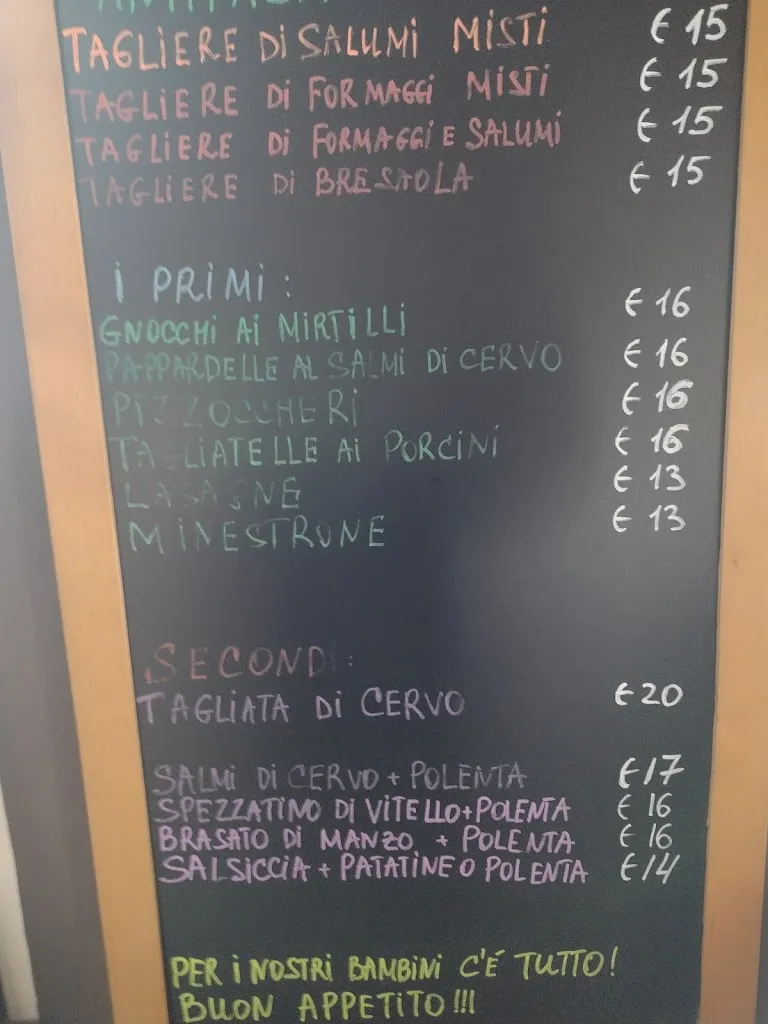 TAGLIERE Di SALUMi MiSTi € 15
TAGLIERE Di FORMAGGi MiSTi € 15
TAGLIERE Di FORMAGGi E SALUMi € 15
TAGLIERE Di BRESAOLA € 15
i PRiMi :
GNOCCHi Ai MiRTiLLi € 16
PAPPARDELLE AL SALMi Di CERVO € 16
PiZZOCCHERi € 16
TAGLiATELLE Ai PORCiNi € 16
LASAGNE € 13
MiNESTRONE € 13
SECONDi :
TAGLiATA Di CERVO € 20
SALMi Di CERVO + POLENTA € 17
SPEZZATINO Di ViTELLO + POLENTA € 16
BRASATO Di MANZO + POLENTA € 16
SALSiCCiA + PATATiNE O POLENTA € 14
PER i NOSTRi BAMBiNi C'É TUTTO!
BUON APPETiTO!!!